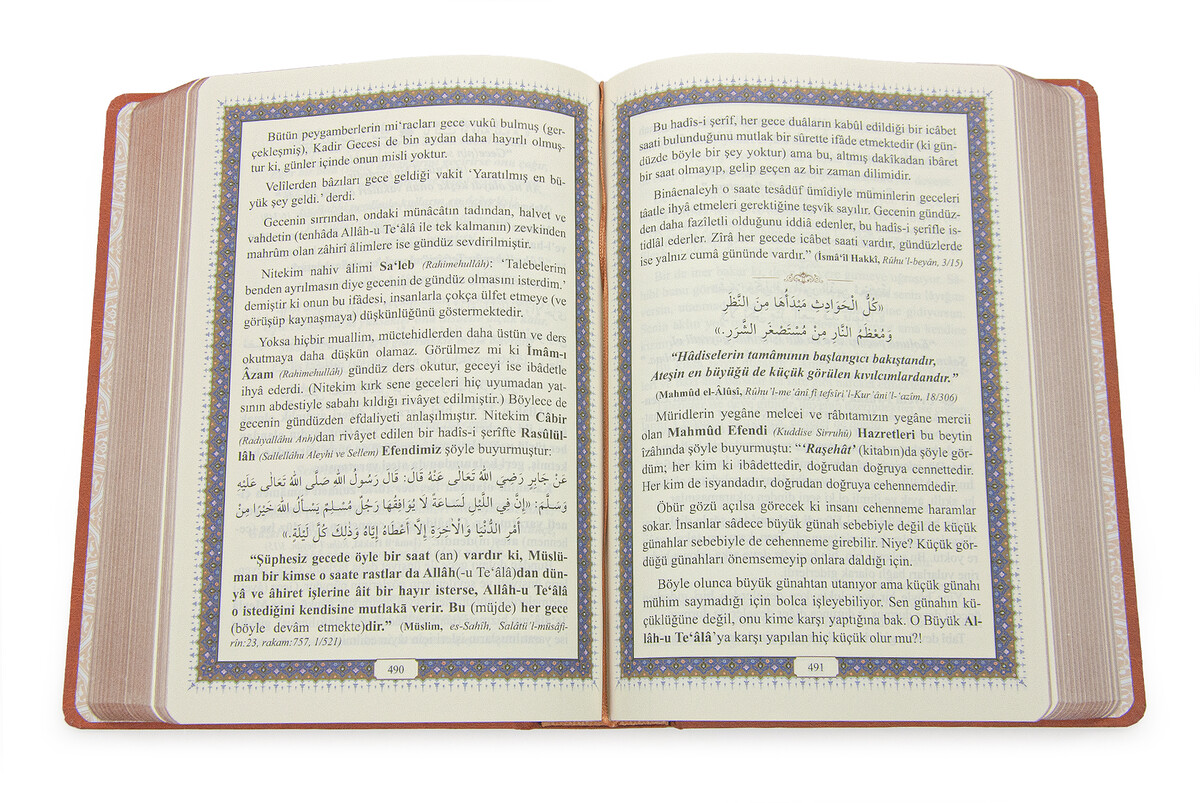 Bütün peygamberlerin mi‘racları gece vukû bulmuş (ger-
çekleşmiş), Kadir Gecesi de bin aydan daha hayırlı olmuş-
tur ki, günler içinde onun misli yoktur.
Velîlerden bâzıları gece geldiği vakit ‘Yaratılmış en bü-
yük şey geldi.’ derdi.
Gecenin sırrından, ondaki münâcâtın tadından, halvet ve
vahdetin (tenhâda Allâh-u Te‘âlâ ile tek kalmanın) zevkinden
mahrûm olan zâhirî âlimlere ise gündüz sevdirilmiştir.
Nitekim nahiv âlimi Sa‘leb (Rahimehullâh): ‘Talebelerim
benden ayrılmasın diye gecenin de gündüz olmasını isterdim.’
demiştir ki onun bu ifâdesi, insanlarla çokça ülfet etmeye (ve
görüşüp kaynaşmaya) düşkünlüğünü göstermektedir.
Yoksa hiçbir muallim, müctehidlerden daha üstün ve ders
okutmaya daha düşkün olamaz. Görülmez mi ki İmâm-ı
Âzam (Rahimehullâh) gündüz ders okutur, geceyi ise ibâdetle
ihyâ ederdi. (Nitekim kırk sene geceleri hiç uyumadan yat-
sının abdestiyle sabahı kıldığı rivâyet edilmiştir.) Böylece de
gecenin gündüzden efdaliyeti anlaşılmıştır. Nitekim Câbir
(Radıyallâhu Anh)dan rivâyet edilen bir hadîs-i şerîfte Rasûlül-
lâh (Sallellâhu Aleyhi ve Sellem) Efendimiz şöyle buyurmuştur:
عَنْ جَابِرٍ رَضِيَ اللهُ تَعَالٰى عَنْهُ قَالَ: قَالَ رَسُولُ اللهِ صَلَّى اللهُ تَعَالٰى عَلَيْهِ
وَسَلَّمَ: «إِنَّ فِي اللَّيْلِ لَسَاعَةً لَا يُوَافِقُهَا رَجُلٌ مُسْلِمٌ يَسْأَلُ اللهَ خَيْرًا مِنْ
أَمْرِ الدُّنْيَا وَالْاٰخِرَةِ إِلَّا أَعْطَاهُ إِيَّاهُ وَذٰلِكَ كُلَّ لَيْلَةٍ.»
“Şüphesiz gecede öyle bir saat (an) vardır ki, Müslü-
man bir kimse o saate rastlar da Allâh(-u Te‘âlâ)dan dün-
yâ ve âhiret işlerine âit bir hayır isterse, Allâh-u Te‘âlâ
o istediğini kendisine mutlakâ verir. Bu (müjde) her gece
(böyle devâm etmekte)dir.” (Müslim, es-Sahîh, Salâtü’l-müsâfi-
rîn:23, rakam:757, 1/521)
490
Bu hadîs-i şerîf, her gece duâların kabûl edildiği bir icâbet
saati bulunduğunu mutlak bir sûrette ifâde etmektedir (ki gün-
düzde böyle bir şey yoktur) ama bu, altmış dakîkadan ibâret
bir saat olmayıp, gelip geçen az bir zaman dilimidir.
Binâenaleyh o saate tesâdüf ümîdiyle müminlerin geceleri
tâatle ihyâ etmeleri gerektiğine teşvîk sayılır. Gecenin gündüz-
den daha fazîletli olduğunu iddiâ edenler, bu hadîs-i şerîfle is-
tidlâl ederler. Zîrâ her gecede icâbet saati vardır, gündüzlerde
ise yalnız cumâ gününde vardır.” (İsmâ‘îl Hakkî, Rûhu’l-beyân, 3/15)
«كُلُّ الْحَوَادِثِ مَبْدَأُهَا مِنَ النَّظَرِ
وَمُعْظَمُ النَّارِ مِنْ مُسْتَصْغَرِ الشَّرَرِ.»
“Hâdiselerin tamâmının başlangıcı bakıştandır,
Ateşin en büyüğü de küçük görülen kıvılcımlardandır.”
(Mahmûd el-Âlûsî, Rûhu’l-me‘ânî fî tefsîri’l-Kur’âni’l-‘azîm, 18/306)
Müridlerin yegâne melcei ve râbıtamızın yegâne mercii
olan Mahmûd Efendi (Kuddise Sirruhû) Hazretleri bu beytin
îzâhında şöyle buyurmuştu: “‘Raşehât’ (kitabın)da şöyle gör-
düm; her kim ki ibâdettedir, doğrudan doğruya cennettedir.
Her kim de isyandadır, doğrudan doğruya cehennemdedir.
Öbür gözü açılsa görecek ki insan cehenneme haramlar
sokar. İnsanlar sâdece büyük günah sebebiyle değil de küçük
günahlar sebebiyle de cehenneme girebilir. Niye? Küçük gör-
düğü günahları önemsemeyip onlara daldığı için.
Böyle olunca büyük günahtan utanıyor ama küçük günahı
mühim saymadığı için bolca işleyebiliyor. Sen günahın kü-
çüklüğüne değil, onu kime karşı yaptığına bak. O Büyük Al-
lâh-u Te‘âlâ’ya karşı yapılan hiç küçük olur mu?!
491